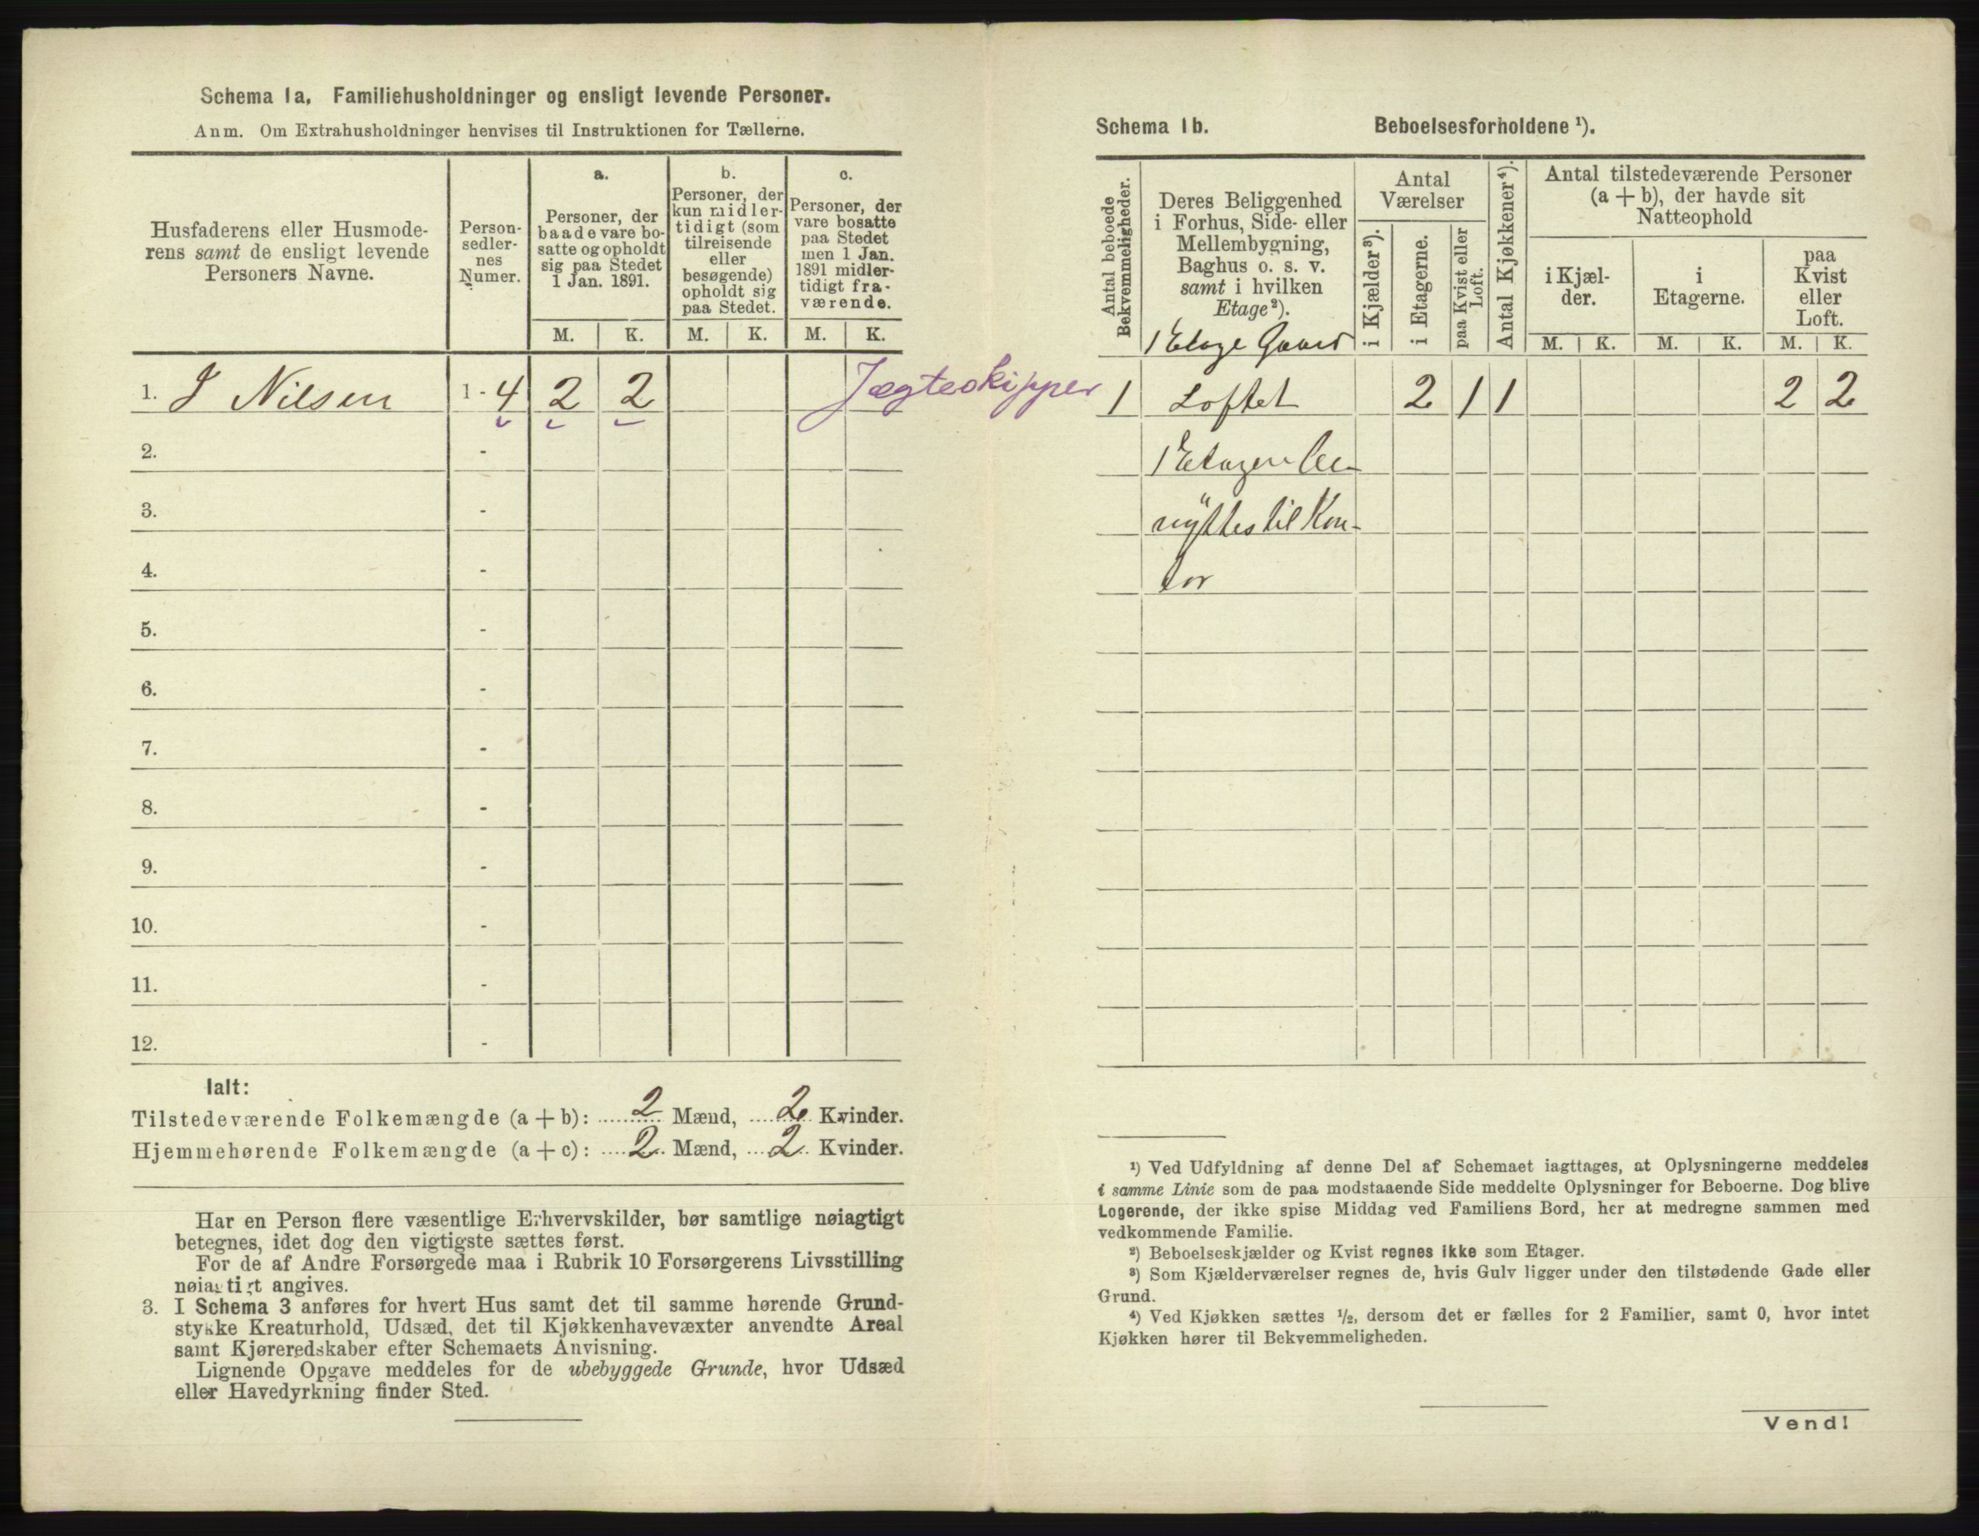 Schema 1a. Familiehusholdninger og ensligt levende Personer.
Anm. Om Extrahusholdninger henvises til Instruktionen for Tællerne.
Husfaderens eller Husmode-
rens samt de ensligt levende
Personers Navne.
Person-
sedler-
nes
Numer.
a.
Personer, der
baade vare bo-
satte og opholdt
sig paa Stedet
1 Jan. 1891.
b.
Personer, der
kun midler-
tidigt (som
tilreisende
eller
besøgende)
opholdt sig
paa Stedet.
c.
Personer, der
vare bosatte
paa Stedet
men 1 Jan.
1891 midler-
tidigt fra-
værende.
M. K. M. K. M. K.
1. J Nilsen 1 - 4 2 2 Jægteskipper
2. -
3. -
4. -
5. -
6. -
7. -
8. -
9. -
10. -
11. -
12. -
Ialt:
Tilstedeværende Folkemængde (a + b): 2 Mænd, 2 Kvinder.
Hjemmehørende Folkemængde (a + c): 2 Mænd, 2 Kvinder.
Har en Person flere væsentlige Erhvervskilder, bør samtlige nøiagtigt
betegnes, idet dog den vigtigste sættes først.
For de af Andre Forsørgede maa i Rubrik 10 Forsørgerens Livsstilling
nøiagtigt angives.
3. I Schema 3 anføres for hvert Hus samt det til samme hørende Grund-
stykke Kreaturhold, Udsæd, det til Kjøkkenhavevæxter anvendte Areal
samt Kjøreredskaber efter Schemaets Anvisning.
Lignende Opgave meddeles for de ubebyggede Grunde, hvor Udsæd
eller Havedyrkning finder Sted.
Schema 1b. Beboelsesforholdene ¹).
Antal beboede
Bekvemmeligheder.
Deres Beliggenhed
i Forhus, Side- eller
Mellembygning,
Baghus o. s. v.
samt i hvilken
Etage²).
Antal
Værelser
i Kjælder³).
i Etagerne.
paa Kvist eller
Loft.
Antal Kjøkkener⁴).
Antal tilstedeværende Personer
(a + b), der havde sit
Natteophold
i Kjæl-
der.
i
Etagerne.
paa
Kvist
eller
Loft.
M. K. M. K. M. K.
1 Etage Gaard
1 Loftet 2 1 1 2 2
1 Etagen be-
nyttes til Kon-
tor
¹) Ved Udfyldning af denne Del af Schemaet iagttages, at Oplysningerne meddeles
i samme Linie som de paa modstaaende Side meddelte Oplysninger for Beboerne. Dog blive
Logerende, der ikke spise Middag ved Familiens Bord, her at medregne sammen med
vedkommende Familie.
²) Beboelseskjælder og Kvist regnes ikke som Etager.
³) Som Kjælderværelser regnes de, hvis Gulv ligger under den tilstødende Gade eller
Grund.
⁴) Ved Kjøkken sættes ½, dersom det er fælles for 2 Familier, samt 0, hvor intet
Kjøkken hører til Bekvemmeligheden.
Vend!